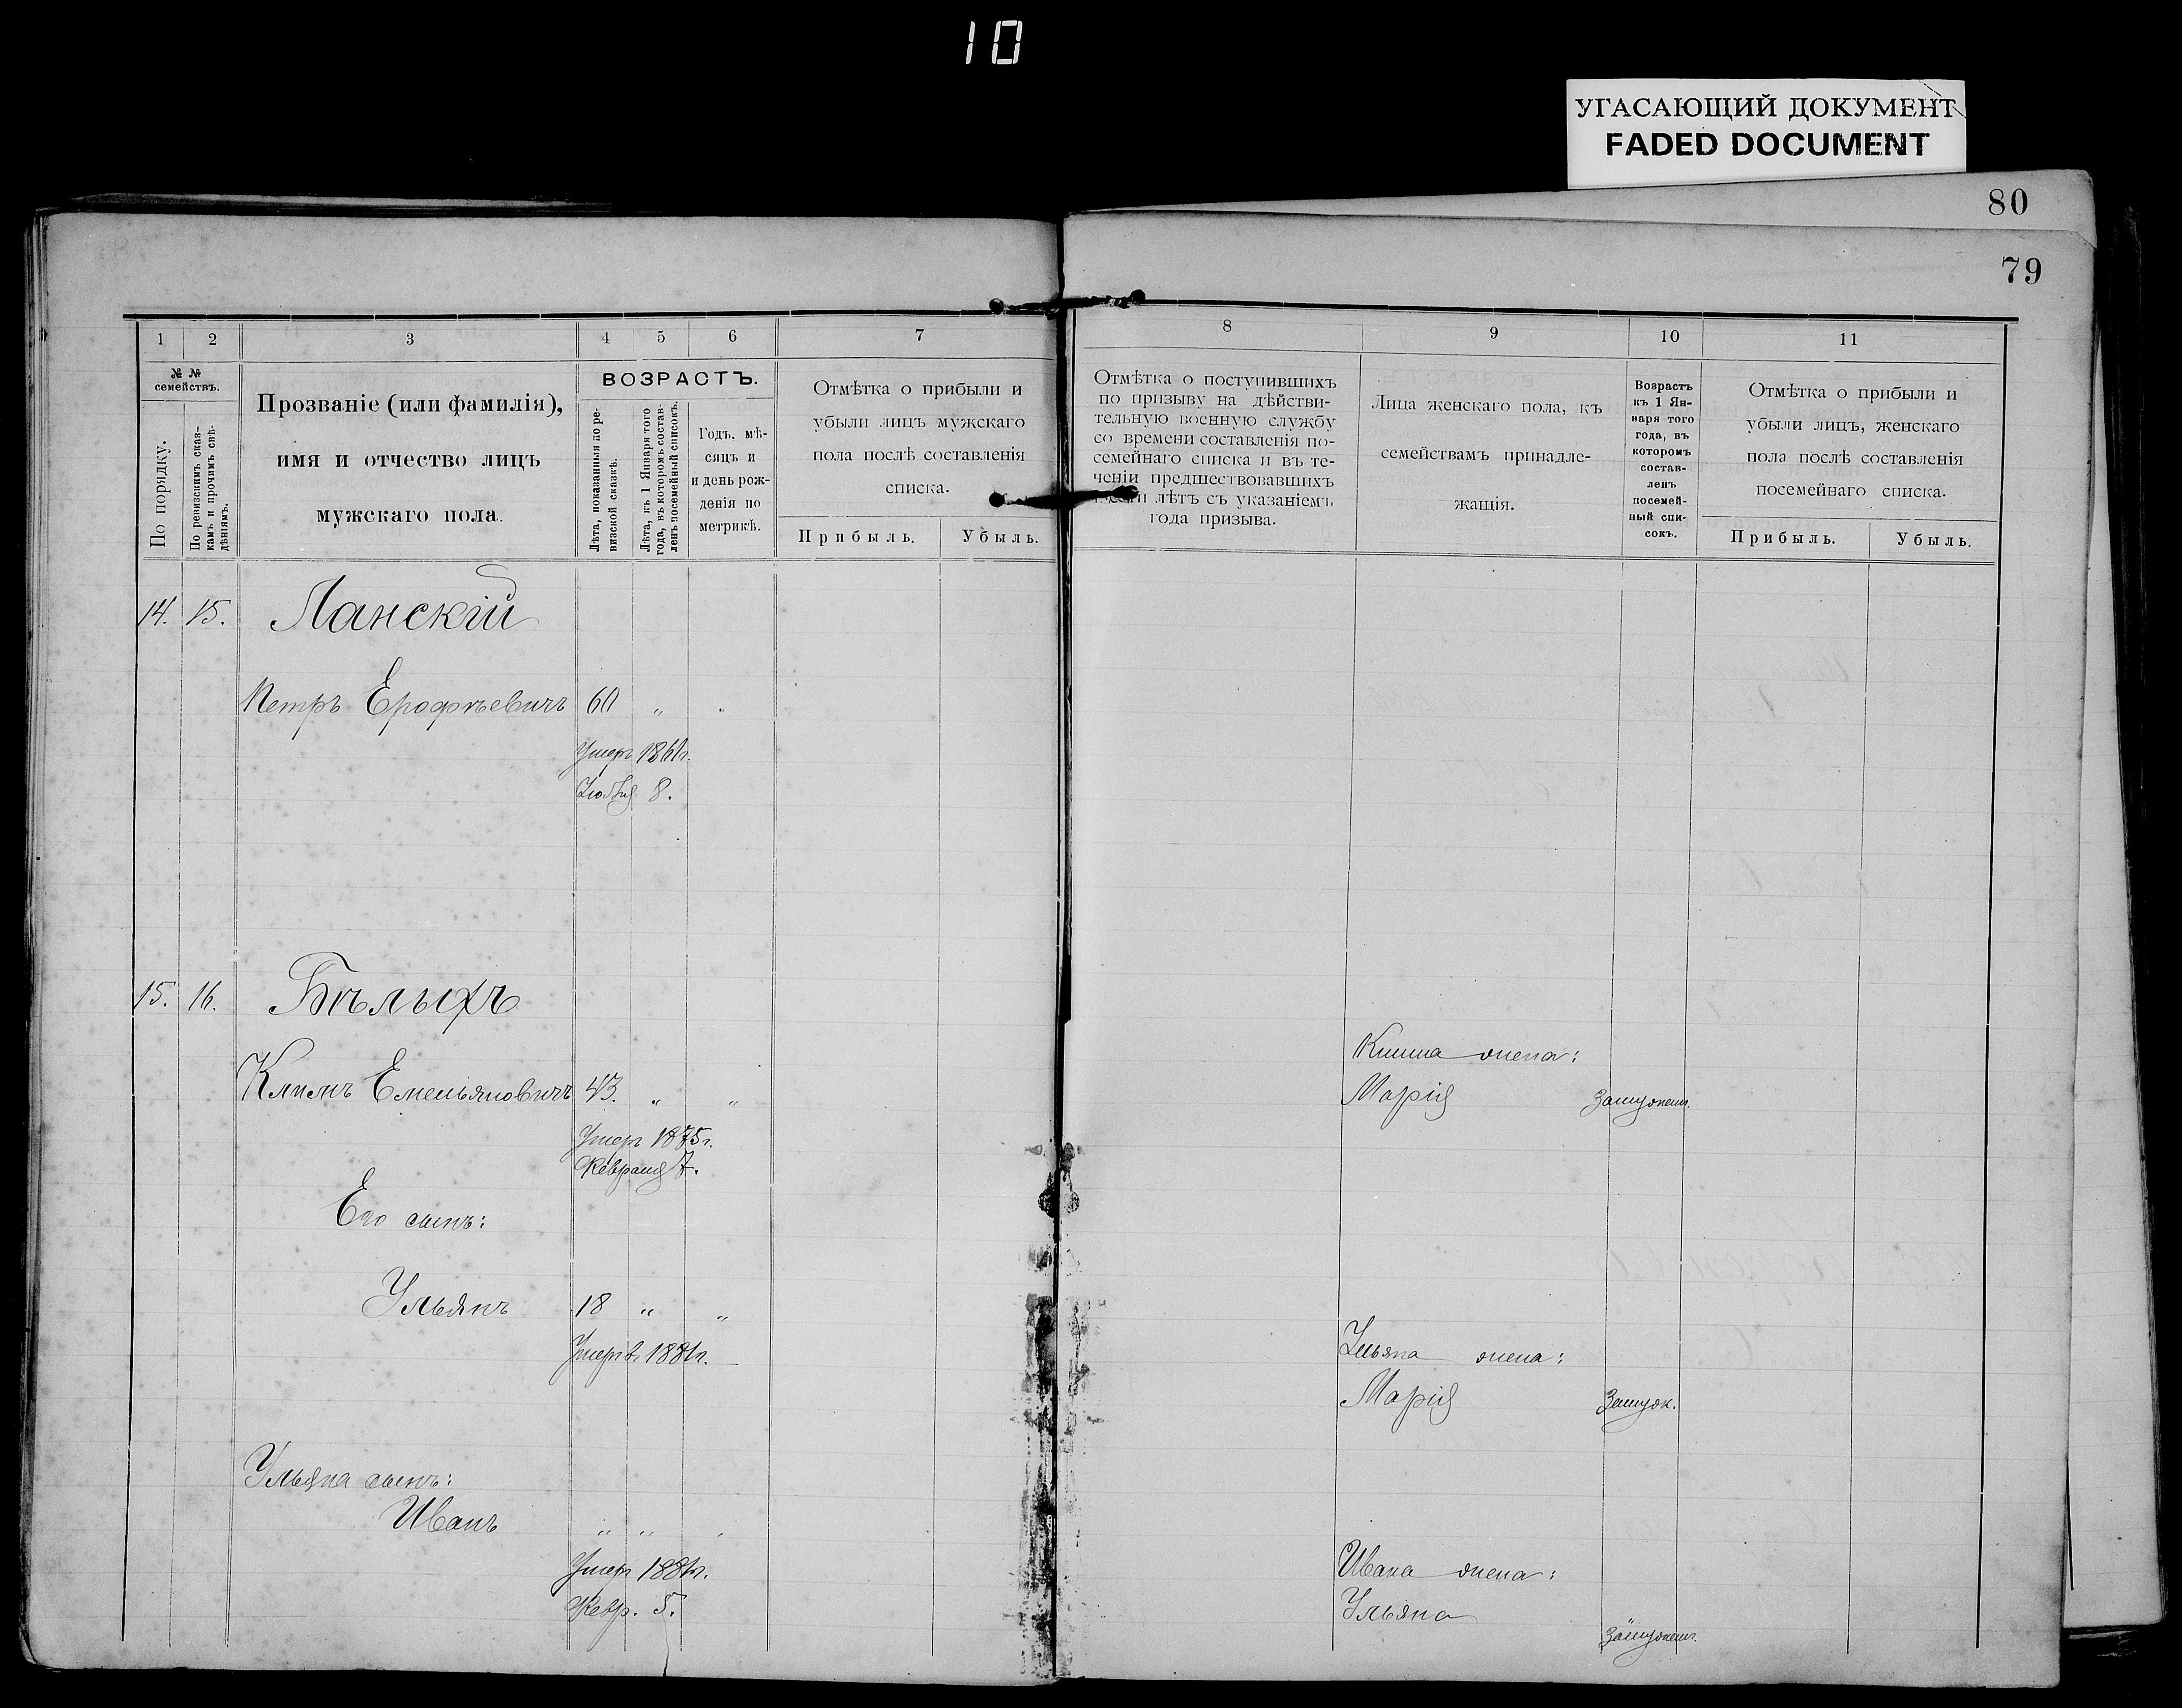 10
УГАСАЮЩИЙ ДОКУМЕНТ
FADED DOCUMENT
80
79
1 2 3 4 5 6 7 8 9 10 11
№ №
семействъ.
По порядку.
По ревизскимъ сказ-
камъ и прочимъ свѣ-
дѣніямъ.
Прозваніе (или фамилія),
имя и отчество лицъ
мужскаго пола.
ВОЗРАСТЪ.
Лѣта, показанныя по ре-
визской сказкѣ.
Лѣта, къ 1 Января того
года, въ которомъ состав-
ленъ посемейный списокъ.
Годъ, мѣ-
сяцъ и
и день рож-
денія по
метрикѣ.
Отмѣтка о прибыли и
убыли лицъ мужскаго
пола послѣ составленія
списка.
Прибыль. Убыль.
Отмѣтка о поступившихъ
по призыву на дѣйстви-
тельную военную службу
со времени составленія по-
семейнаго списка и въ те-
ченіи предшествовавшихъ
лѣтъ съ указаніемъ
года призыва.
Лица женскаго пола, къ
семействамъ принадле-
жащія.
Возрастъ
къ 1 Ян-
варя того
года, въ
которомъ
состав-
ленъ
посемей-
ный спи-
сокъ.
Отмѣтка о прибыли и
убыли лицъ, женскаго
пола послѣ составленія
посемейнаго списка.
Прибыль. Убыль.
14. 15. Ланскій
Петръ Ерофѣевичъ 60 „ „
Умеръ 1861г.
8.
15. 16. Бѣлыхъ
Клима жена:
Климъ Емельяновичъ 43. „ „ Марія Замужем.
Умеръ 1875г.
Февраля 7.
Его сынъ:
Ульянъ 18 „ „
Умеръ въ 1881г. Ульяна жена:
Марія Замуж.
Ульяна сынъ:
Иванъ „ „ „
Умеръ 1881г. Ивана жена:
Февр. 5. Ульяна
Замужем.